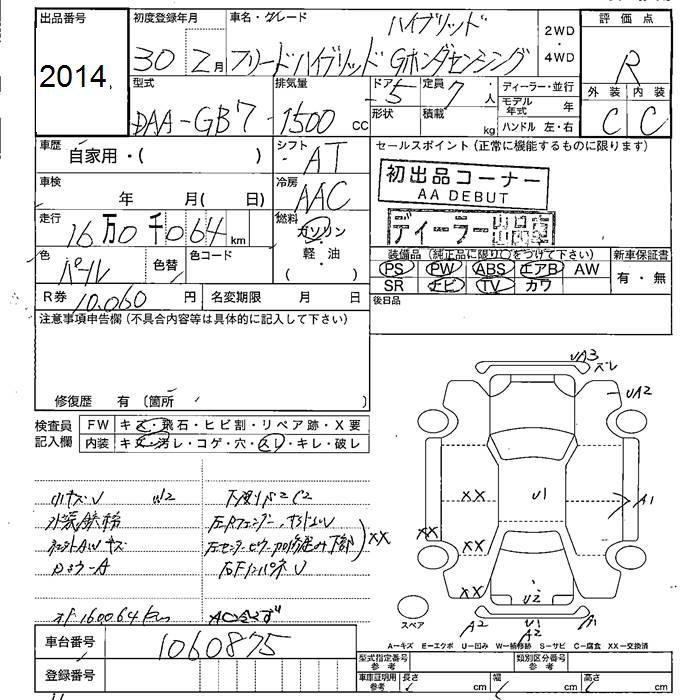 出品番号
2014
初度登録年月
30 2月
車名・グレード
ハイブリッド
フリードハイブリッド Gホンダセンシング
2WD
・
4WD
評価点
R
外装 内装
C C
型式
DAA-GB7
排気量
1500 cc
ドア
5
形状
定員
7 人
積載 kg
ディーラー・並行
モデル年式 年
ハンドル 左・右
車歴
自家用・( )
シフト
AT
セールスポイント(正常に機能するものに限ります)
初出品コーナー
AA DEBUT
ディーラー出品車
車検
年 月( 日)
冷房
AAC
走行
16万0千064 km
燃料
ガソリン
軽・油
( )
色
パール
色替
色コード
装備品(純正品に限り○をつけて下さい)
PS PW ABS エアB AW
SR ナビ TV カワ
新車保証書
有・無
R券 10,060 円
名変期限 月 日
後日品
注意事項申告欄(不具合内容等は具体的に記入して下さい)
修復歴 有〔箇所 〕
検査員
記入欄
FW キズ・飛石・ヒビ割・リペア跡・X要
内装 キズ・汚レ・コゲ・穴・スレ・キレ・破レ
小キズU
XX
160064km
UA3
ズレ
UA2
XX
U1
A1
XX
XX
XX
U2
A2
U1
A2
A1
スペア
A-キズ E-エクボ U-凹み W-補修跡 S-サビ C-腐食 XX-交換済
車台番号
1060875
登録番号
型式指定番号
参考
類別区分番号
参考
車庫証明用
参考
長さ cm
幅 cm
高さ cm